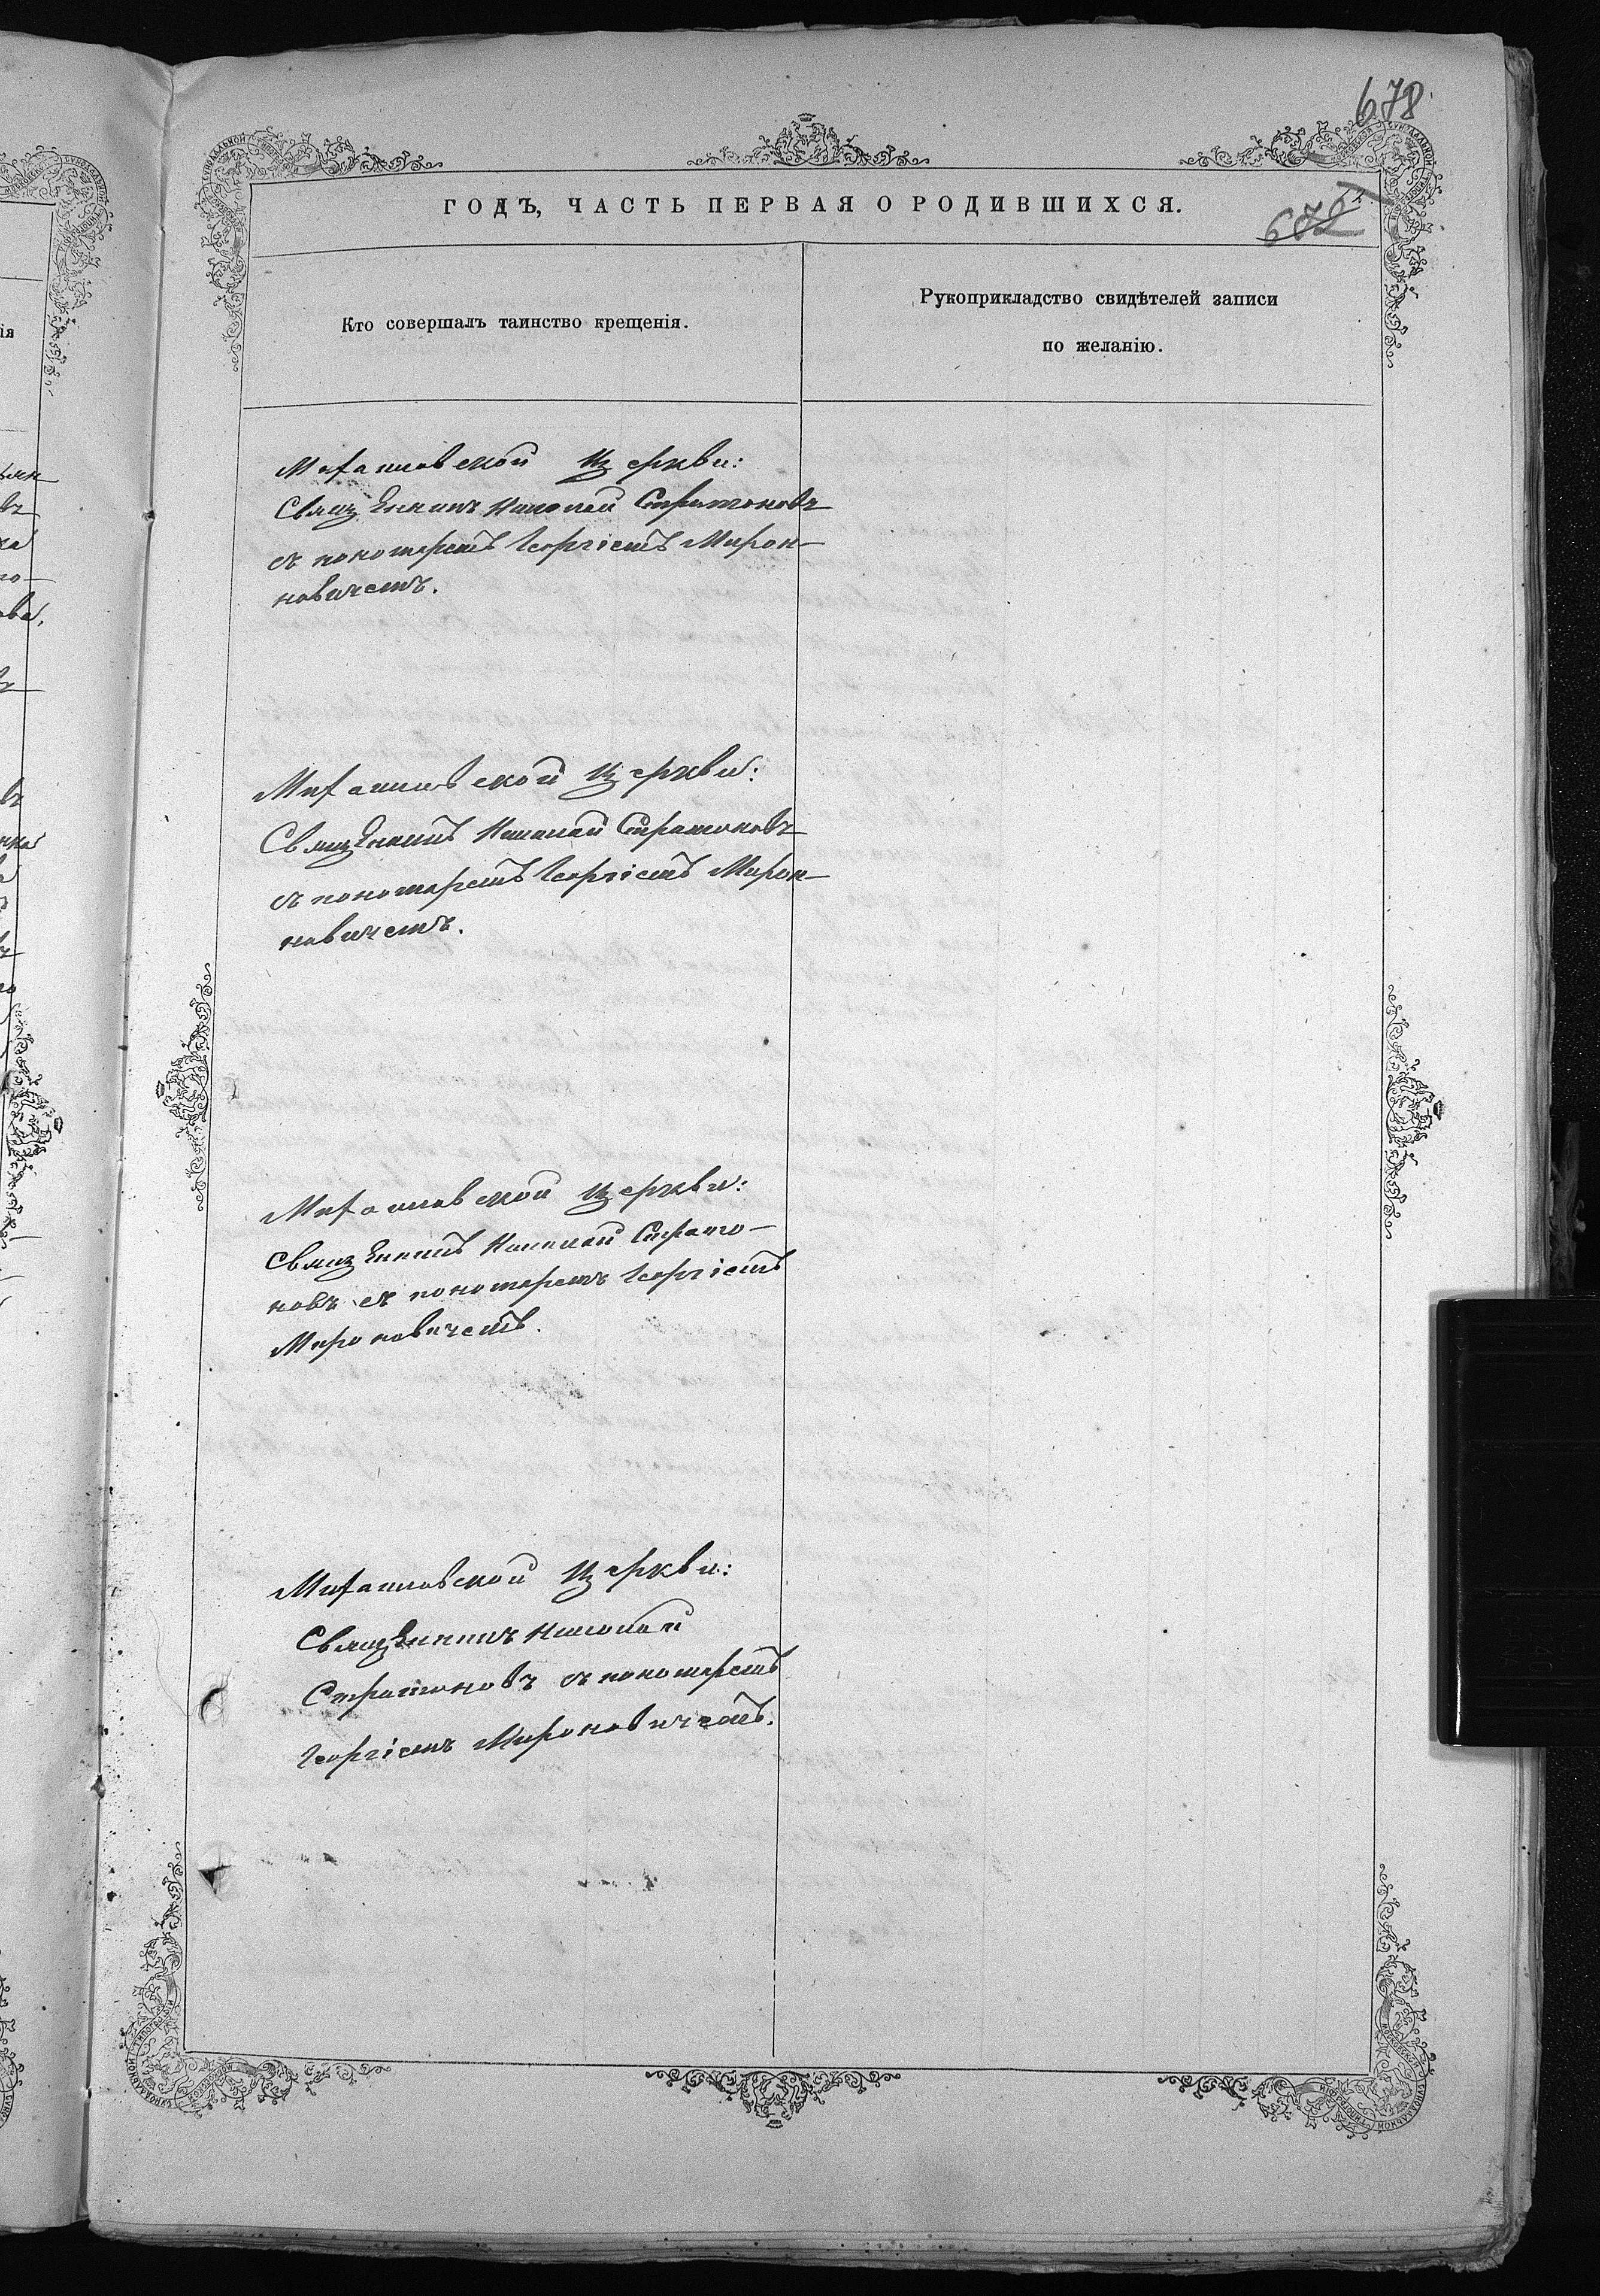 678
ГОДЪ, ЧАСТЬ ПЕРВАЯ О РОДИВШИХСЯ.
Кто совершалъ таинство крещенія.
Рукоприкладство свидѣтелей записи
по желанію.
Михаиловской Церкви:
Священникъ Николай Стратоновъ
съ пономаремъ Георгіемъ Мирон-
новичемъ.
Михаиловской Церкви:
Священникъ Николай Стратоновъ
съ пономаремъ Георгіемъ Мирон-
новичемъ.
Михаиловской Церкви:
Священникъ Николай Страто-
новъ съ пономаремъ Георгіемъ
Мироновичемъ.
Михаиловской Церкви:
Священникъ Николай
Стратоновъ съ пономаремъ
Георгіемъ Мироновичемъ.